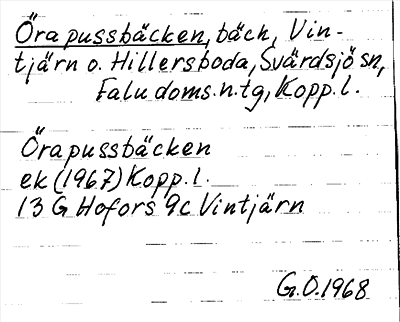 Örapussbäcken, bäck, Vin-
tjärn o. Hillersboda, Svärdsjö sn,
Falu doms.n.tg, Kopp. l.
Örapussbäcken
ek (1967) Kopp. l.
13 G Hofors 9c Vintjärn
G.O. 1968